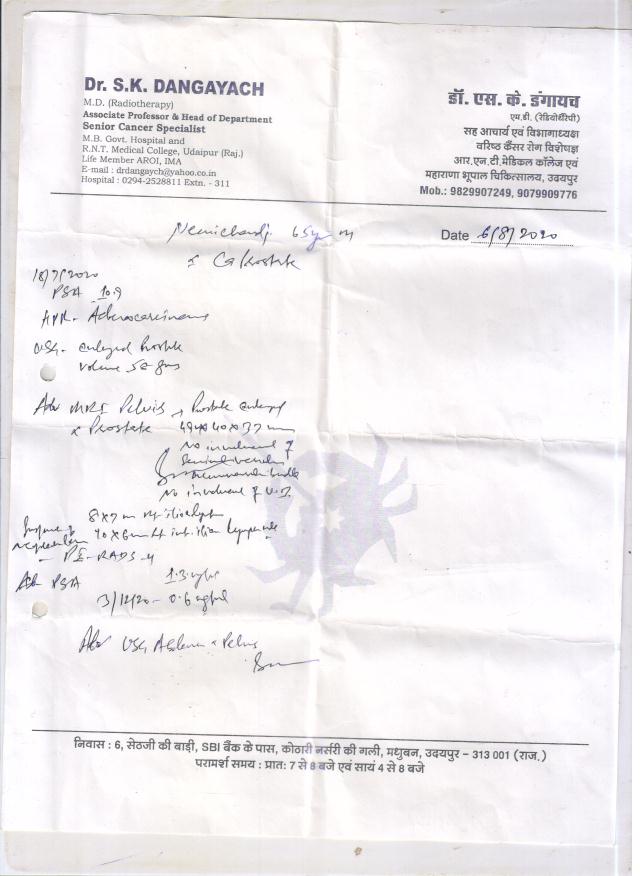 Dr. S.K. DANGAYACH
M.D. (Radiotherapy)
Associate Professor & Head of Department
Senior Cancer Specialist
M.B. Govt. Hospital and
R.N.T. Medical College, Udaipur (Raj.)
Life Member AROI, IMA
E-mail : drdangaych@yahoo.co.in
Hospital : 0294-2528811 Extn. - 311
डॉ. एस. के. डंगायच
एम.डी. (रेडियोथैरेपी)
सह आचार्य एवं विभागाध्यक्ष
वरिष्ठ कैंसर रोग विशेषज्ञ
आर.एन.टी.मेडिकल कॉलेज एवं
महाराणा भूपाल चिकित्सालय, उदयपुर
Mob.: 9829907249, 9079909776
Date 6/8/2020
Nemichandji 65yr m
Ca Prostate
18/7/2020
PSA 10.9
HPR- Adenocarcinoma
USG- enlarged Prostate
volume 58 gms
Adv MRI Pelvis → Prostate enlarged
& Prostate 49x40x37 mm
No involvement of
Seminal vesicles
Neurovascular bundle
No involvement of U.B.
8x7 m
10x6mm Lt
- PI-RADS-4
Adv PSA 1.3
3/12/20 - 0.6
Adv USG Abdomen & Pelvis
निवास : 6, सेठजी की बाड़ी, SBI बैंक के पास, कोठारी नर्सरी की गली, मधुबन, उदयपुर – 313 001 (राज.)
परामर्श समय : प्रात: 7 से 8 बजे एवं सायं 4 से 8 बजे